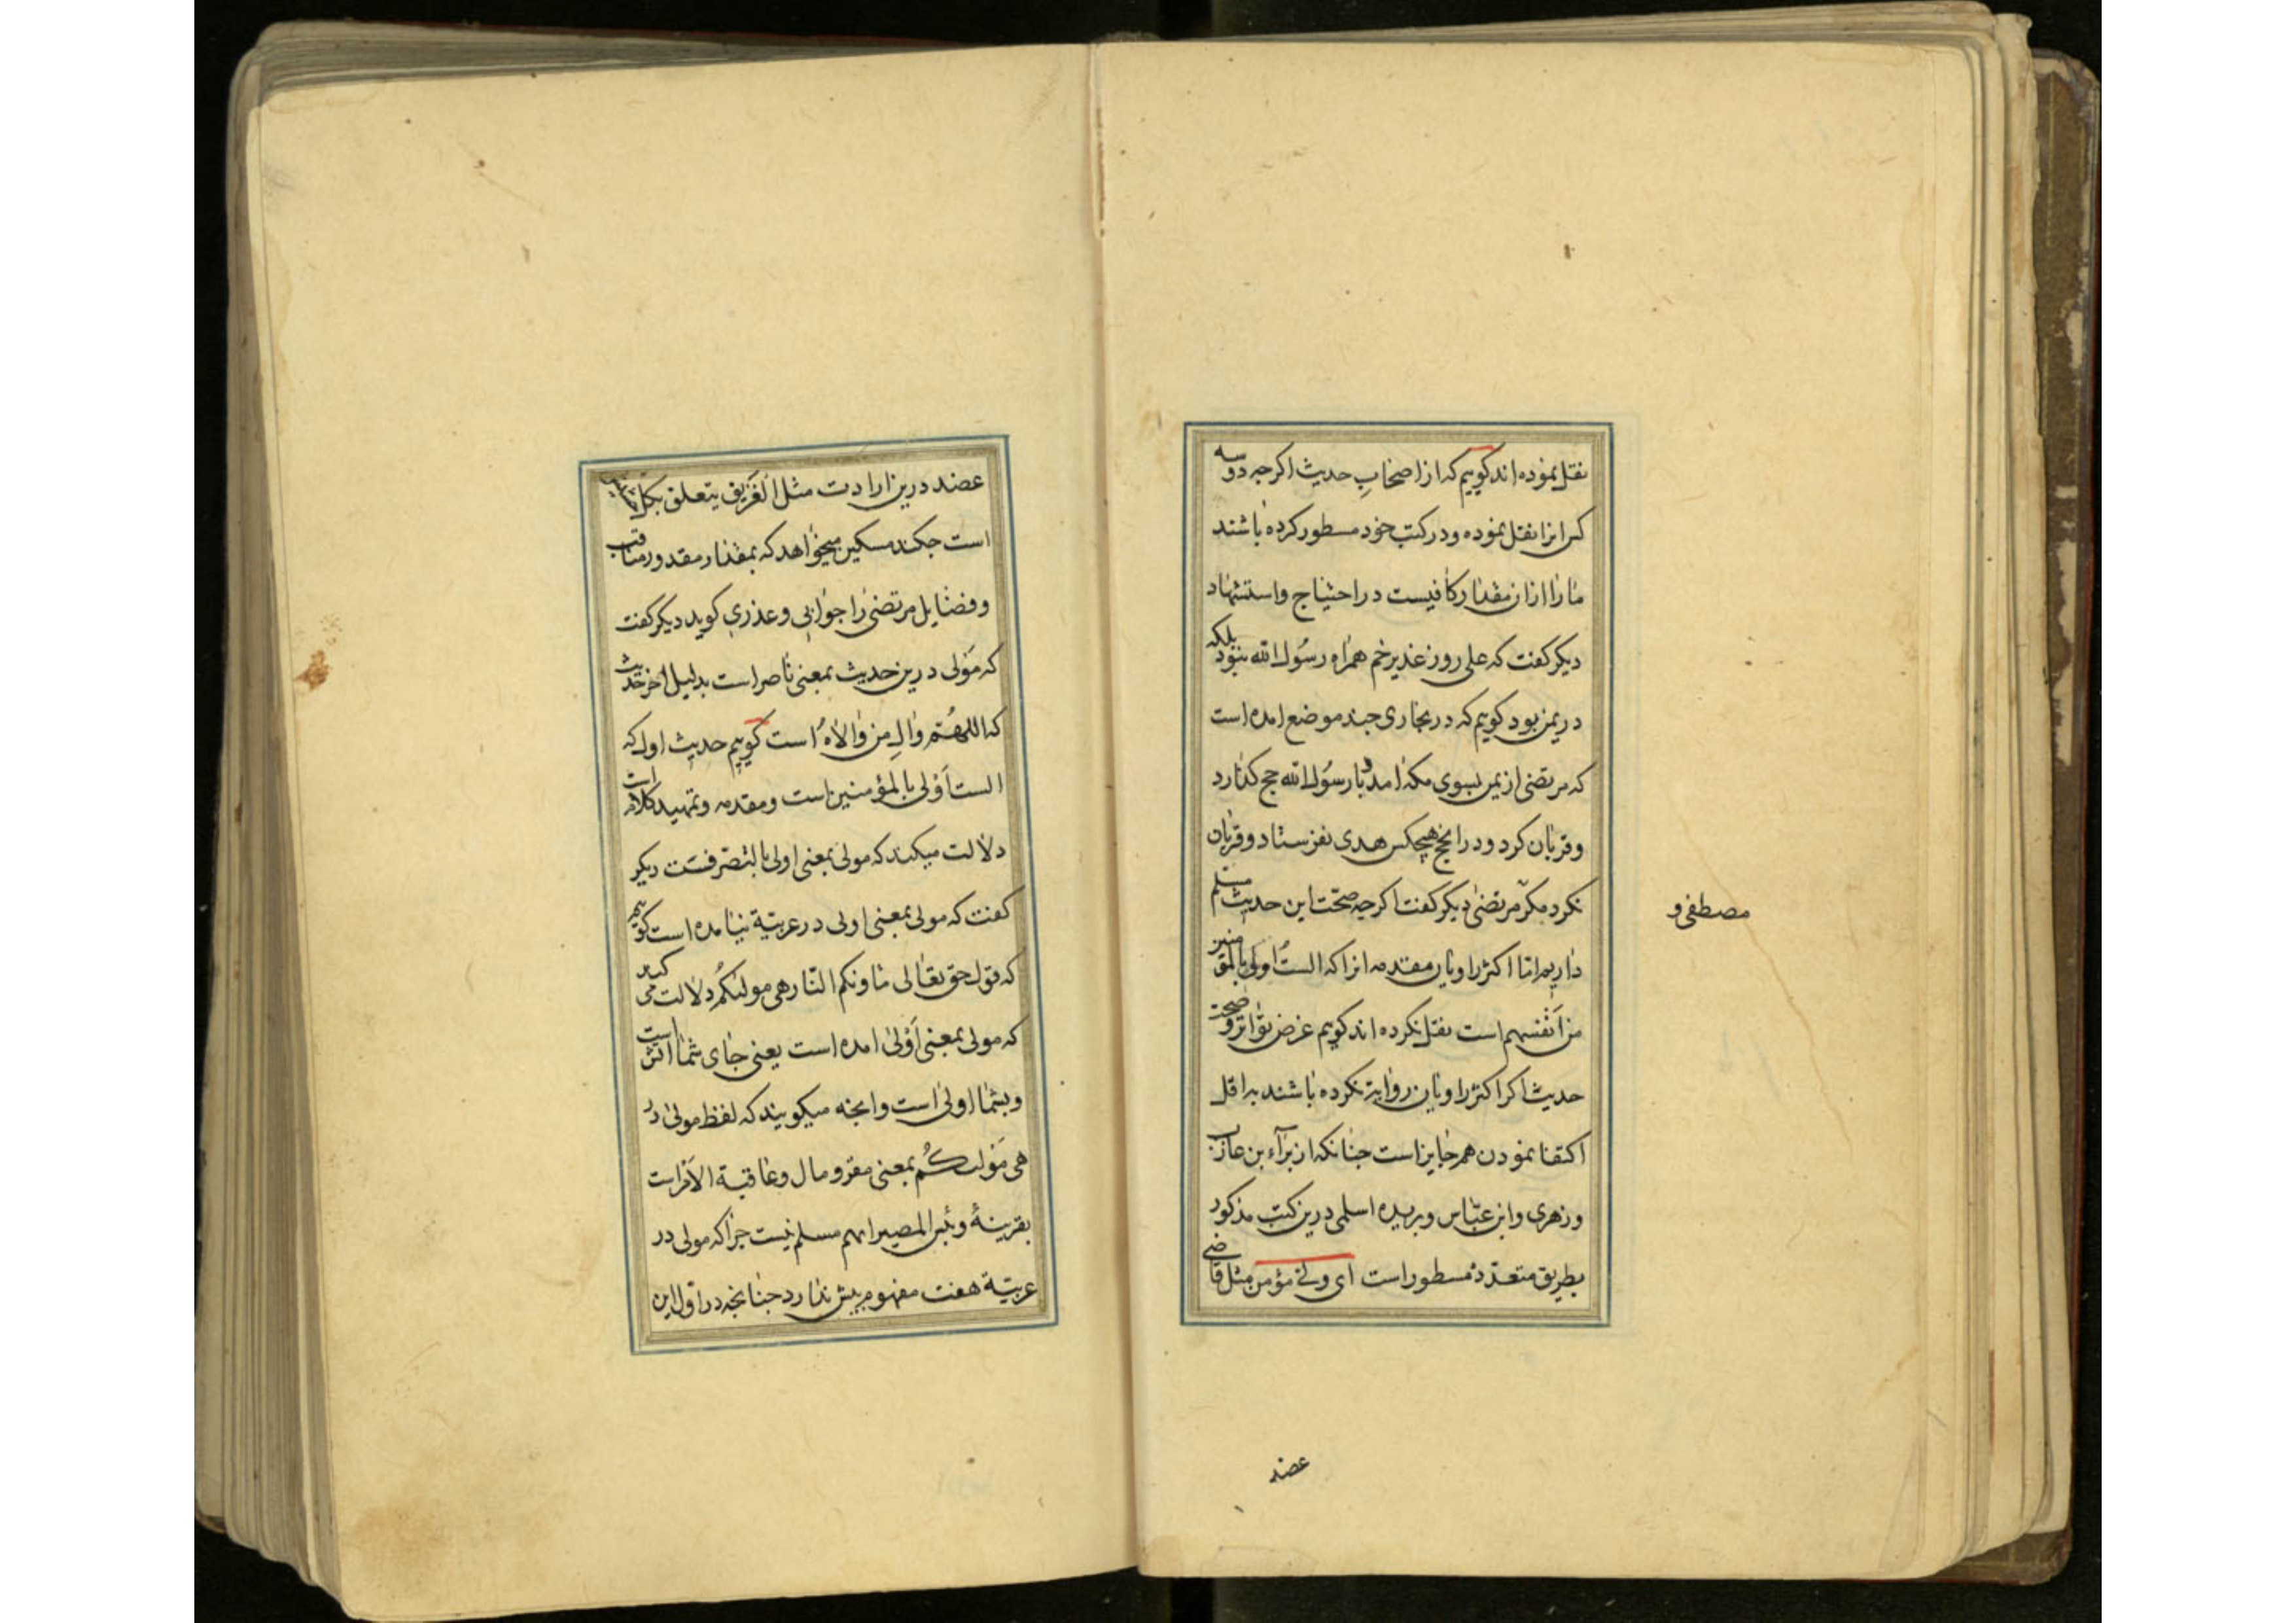 نقل نموده اند کوییم که از اصحابِ حدیث اکرجه دوسه
کس انرا نقل نموده و در کتب خود مسطور کرده باشند
ما را ازان مقدار کافیست در احتیاج و استشهاد
دیکر کفت که علی روز غدیر خم همراه رسُول الله بنود بلکه
در یمن بود کوییم که در بخاری جند موضع امده است
که مرتضی از یمن بسوی مکه امد و با رسُول الله حج کذارد
و قربان کرد و در انحج هیچکس هدی نفرستاد و قربان
نکرد مکر مرتضی دیکر کفت اکرجه صحّت این حدیث مسلم
مصطفی و
داریم امّا اکثر راویان مقدمه انرا که الستُ اولی بالمؤمنین
من اَنفسهم است نقل نکرده اند کوییم غرض تواتر و صحت
حدیث اکر اکثر راویان روایة نکرده باشند براقل
اکتفا نمودن هم جایز است جنانکه از برآء بن عازب
و زهری و ابن عبّاس و بریده اسلمی درین کتب مذکور
بطریق متعدّد مسطور است ای ولی مؤمن مثل قاضی
عضد
عضد درین ارادت مثل الغریق یتعلق بکل
است جکند مسکین میخواهد که بمقدار مقدور مناقب
و فضایل مرتضی را جوابی و عذری کوید دیکر کفت
که مَولی درین حدیث بمعنی ناصر است بدلیل اخر حدیث
که اللهُمّ وَالِ من والاهُ است کوییم حدیث اول که
الست اَوْلی بالمؤمنین است و مقدمه و تمهید کلام است
دلالت میکند که مولی بمعنی اولی بالتصّرفست دیکر
کفت که مولی بمعنی اولی در عربیّة نیامده است کوییم
که قول حق تعالی ماونکم النّار هی مولیٰکُم دلالت می کند
که مولی بمعنی اَوْلیٰ امده است یعنی جای شما اتش است
و بشما اولیٰ است و انجه میکویند که لفظ مولی در
هی مَولیکُم بمعنی مقرّ و مال و عاقبة الاَمر است
بقرینهٔ و بئس المصیر انهم مسلم نیست جرا که مولی در
عربیّة هفت مفهوم بیش ندارد جنانجه در اوّل این